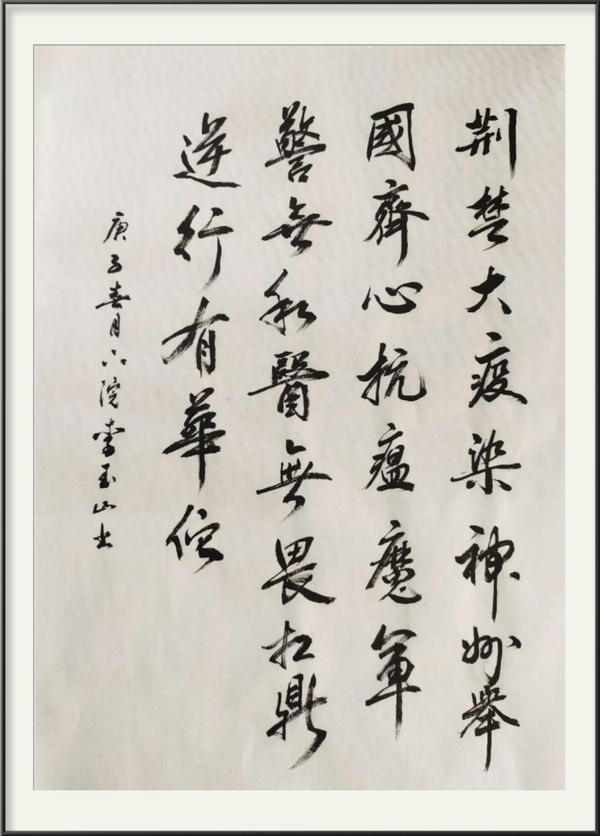 荆楚大疫染神州舉
國齊心抗瘟魔軍
警無私醫無畏扛鼎
逆行有華佗
庚子春月六院李玉山书